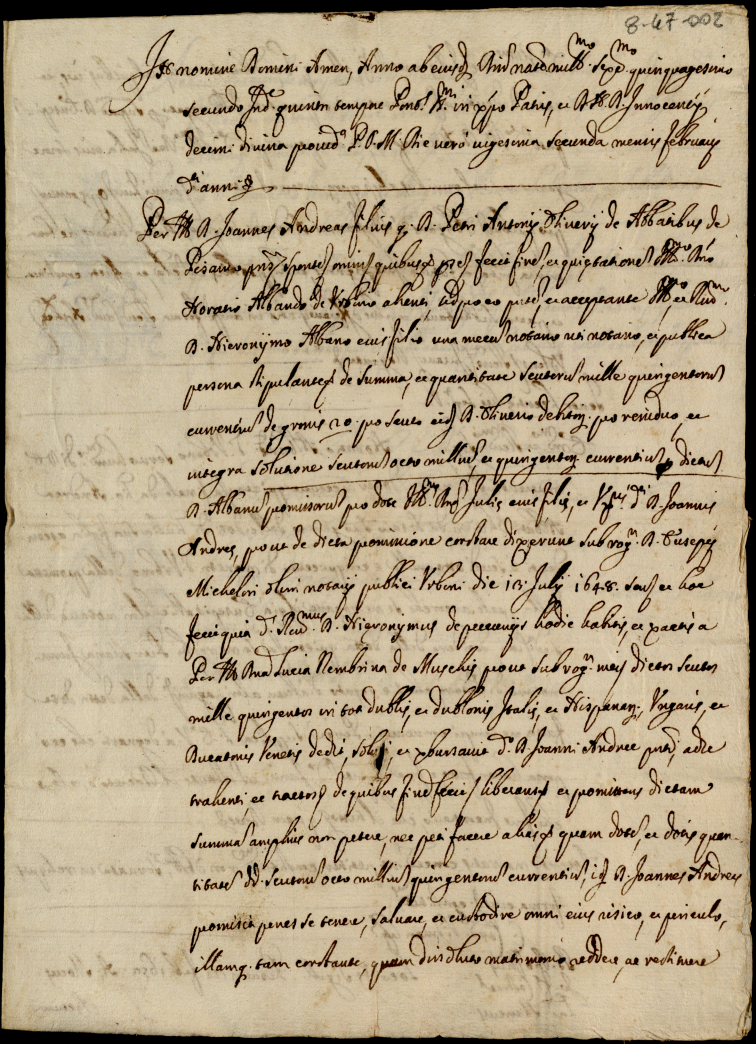 8-47-002
In nomine Domini Amen, Anno ab eiusd. D.ni nat.e mill.mo sexc.mo quinquagesimo
secundo Ind.e quinta tempore Pont.s S.mi in x.po Patris, et D. N. D. Innocentij
decimi divina provid.a P. P. M. Die vero vigesima secunda mensis februarij
d.ti anni
Per Ill. D. Joannes Andreas filius q. D. Petri Antonij Oliverij de Abbatibus de
Pisauro sponte omni quibus fecit fine, et quietatione Ill.mo D.no
Horatio Albano de Urbino absenti, et acceptante Ill.mo et Rev.mo
D. Hieronijmo Albano eius filio una mecum notario uti notario, et publica
persona stipulante de summa, et quantitate scutorum mille quingentorum
currentium de gronis 20 pro scuto eid. D. Oliverio debitor. pro residuo, et
integra solutione scutorum octo millium, et quingentor. currentium, p dictum
D. Albanum promissorum pro dote Ill. D. Julię eius filię, et Ux.ris d.i D. Joannis
Andreę, prout de dicta promissione constare dixerunt sub rog. D. Iuseppij
Michelini olim notarij publici Urbini die 13 Julij 1648. et hoc
fecit quia d. Rev.mus D. Hieronymus de pecuniis hodie habitis, et exactis a
Per Ill. D.na Lucia Rembrina de Muschis prout sub rog. meis dictos scutos
mille quingentos in tot dublis, et dublonis Italię, et Hispanar., Ungaris, et
Ducatonis Venetis dedit, solvit, et exbursavit d. D. Joanni Andreę pnti, ad se
trahenti, et de quibus fine fecit liberans et promittens dictam
summam amplius non petere, nec peti facere aliasq. quam dotem, et dotis quan-
titatem dd. scutorum octo millium quingentorum currentium, id. D. Joannes Andreas
promisit penes se tenere, salvare, et custodire omni eius risico, et periculo,
illamq. tam constante, quam dissoluto matrimonio reddere, ac restituere